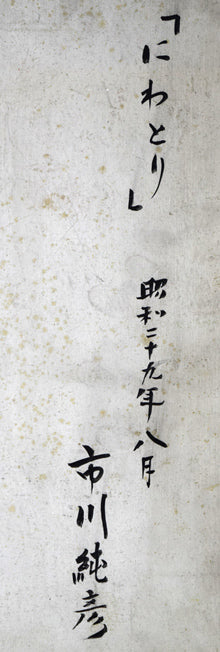 「にわとり」
昭和二十九年八月
市川純彦